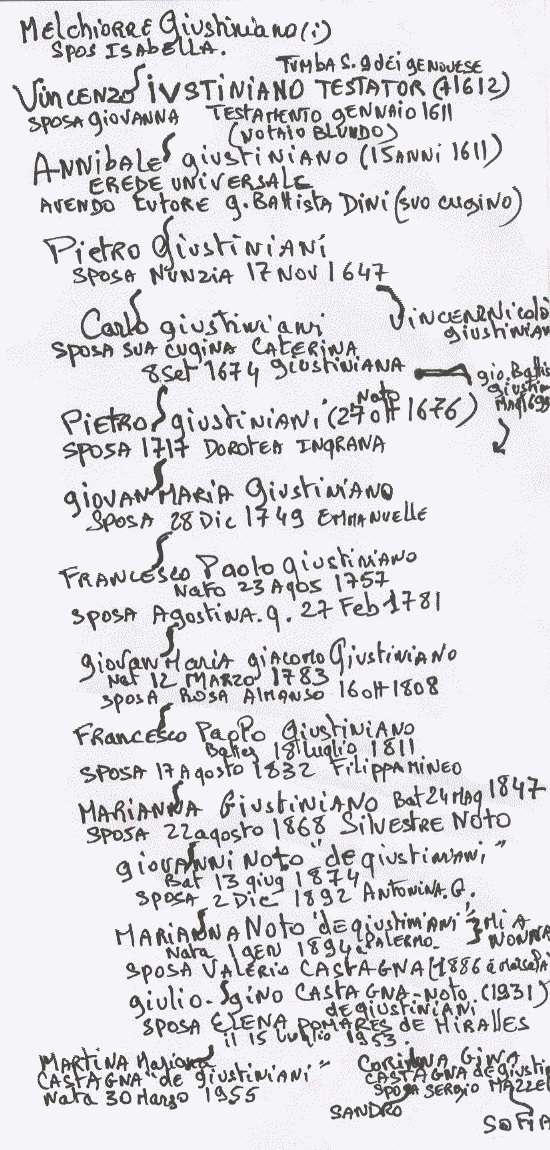 Melchiorre Giustiniano(i)
SPOS ISABELLA.
TUMBA S. g dei GENOVESE
VINCENZO IVSTINIANO TESTATOR (†1612)
SPOSA GIOVANNA TESTAMENTO GENNAIO 1611
(NOTAIO BLUNDO)
ANNIBALE giustiniano (15 ANNI 1611)
EREDE UNIVERSALE
AVENDO TUTORE g. BATTISTA DINI (SUO CUGINO)
PIETRO GIUSTINIANI
SPOSA NUNZIA 17 NOV 1647
VINCENZNicolò
giustinian
Carlo giustiniani
SPOSA SUA CUGINA CATERINA
8 Set 1674 GIUSTINIANA
gio. Battis
giustin
Mag 169
PIETRO giustiniani (Nato 27 ott 1676)
SPOSA 1717 DOROTEA INGRANA
giovan MARIA Giustiniano
SPOSA 28 Dic 1749 EMMANUELLE
FRANCESCO Paolo giustiniano
Nato 23 Agos 1757
SPOSA Agostina. g. 27 Feb 1781
giovan Maria giacomo Giustiniano
Nat 12 MARZO 1783
SPOSA ROSA ALMANSO 16 ott 1808
FRANCESCO PAOLO Giustiniano
18 luglio 1811
SPOSA 17 Agosto 1832 FILIPPA MINEO
MARIANNA GIUSTINIANO Bat 24 MAg 1847
SPOSA 22 agosto 1868 SILVESTRE NOTO
giovanni NOTO "de giustiniani"
Bat 13 giug 1874
SPOSA 2 Dic 1892 ANTONINA. G.
MARIANNA NOTO "de giustiniani" MIA
NONNA
Nata 1 GEN 1894 a PALERMO
SPOSA VALERIO CASTAGNA (1886
giulio-gino CASTAGNA-NOTO (1931)
de giustiniani
SPOSA ELENA POMARES de MIRALLES
il 15 luglio 1953
MARTINA Mariana
CASTAGNA "de giustiniani"
Nata 30 Marzo 1955
CORINNA GINA
CASTAGNA de giustin
SPOSA SERGIO MAZZEL
SANDRO
SOFIA